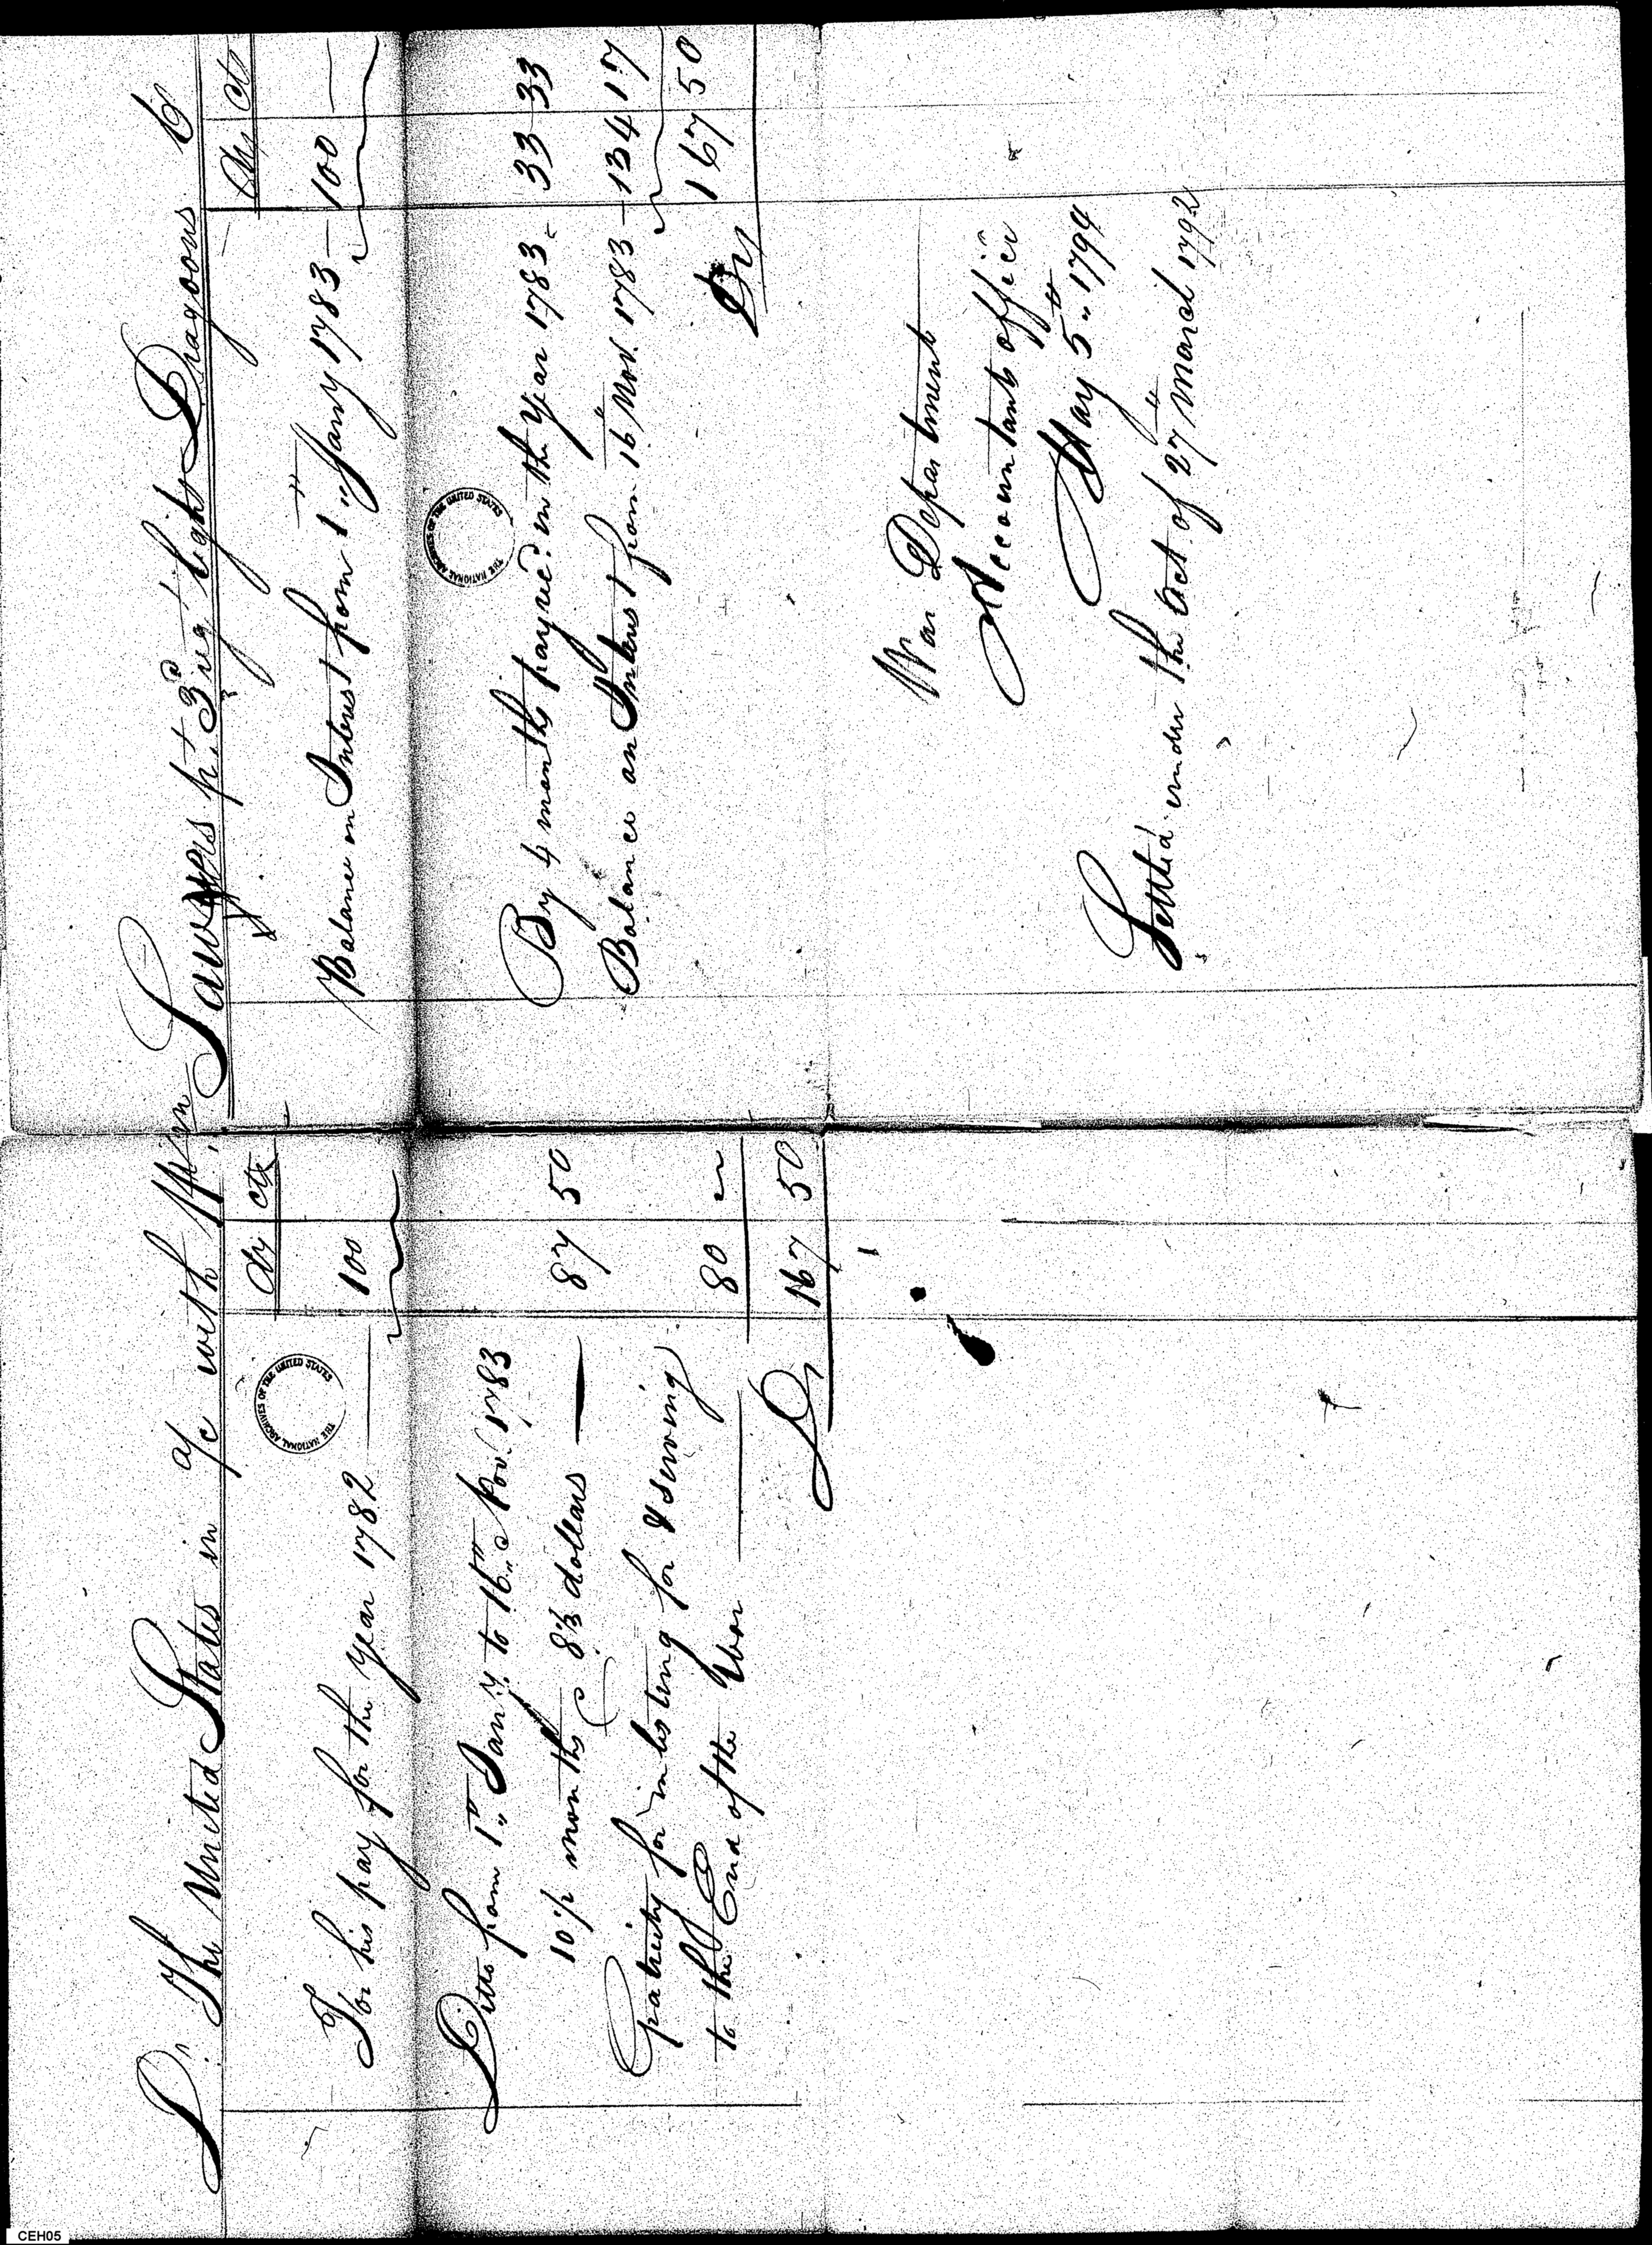 Dr. The United States in a/c with Wm. Sawyers pt. 3d reg t light Dragoons Cr
Drs cts
For his pay for the year 1782 — 100
Ditto from 1st Jany. to 16th Nov. 1783
10½ months @ 8⅓ dollars — 87 50
Gratuity for inlisting for & serving
to the End of the War — 80 ~
Drs 167 50
Drs Cts
Balance on Interest from 1st Jany 1783 — 100 —
By 4 months pay rec'd in the Year 1783 - 33 33
Balance on Interest from 16th Nov. 1783 — 134 17
Drs 167 50
War Department
Accountants office
May 5th 1794
Settled under the Act of 27th March 1792
THE NATIONAL ARCHIVES OF THE UNITED STATES
THE NATIONAL ARCHIVES OF THE UNITED STATES
CEH05